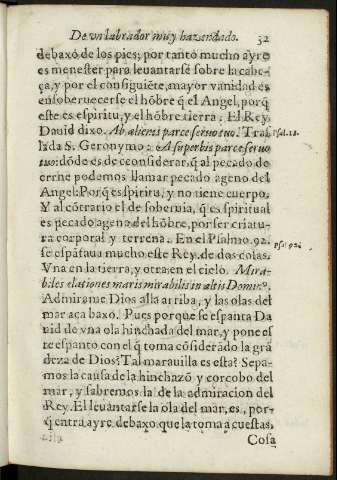 De vn labrador muy hazendado. 32
debaxo de los pies; por tanto mucho ayre
es menester para leuantarse sobre la cabe-
ça, y por el consiguiẽte, mayor vanidad es
ensoberuecerse el hõbre q̃ el Angel, porq̃
este es espiritu, y el hõbre tierra. El Rey
Dauid dixo. Ab alienis parce seruo tuo: Tras Psal. 18.
lada S. Geronymo: A superbis parce seruo
tuo: dõde es de cõsiderar, q̃ al pecado de
carne podemos llamar pecado ageno del
Angel: Porq̃ es spiritu, y no tiene cuerpo.
Y al cõtrario el de soberuia, q̃ es spiritual
es pecado ageno del hõbre, por ser criatu-
ra corporal y terrena. En el Psalmo. 92.
se espãtaua mucho este Rey, de dos colas. Ps. 92.
Vna en la tierra, y otra en el cielo. Mira-
biles elationes maris mirabilis in altis Domin⁹.
Admirome Dios alla arriba, y las olas del
mar aca baxo. Pues porque se espanta Da
uid de vna ola hinchada del mar, y pone es
te espanto con el q̃ toma cõsiderãdo la grã
deza de Dios? Tal marauilla es esta? Sepa-
mos la causa de la hinchazõ y corcobo del
mar, y sabremos la de la admiracion del
Rey. El leuantarse la ola del mar, es, por-
q̃ entra ayre debaxo que la toma a cuestas,
Cosa